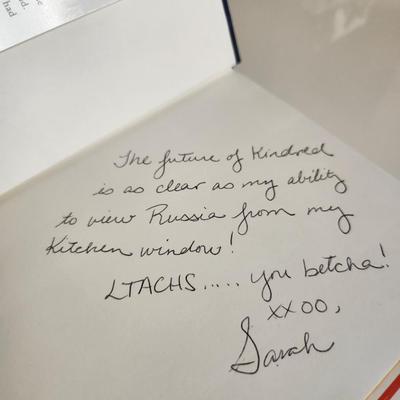 had
The future of Kindred
is as clear as my ability
to view Russia from my
Kitchen window!
LTACHS..... you betcha!
xxoo,
Sarah